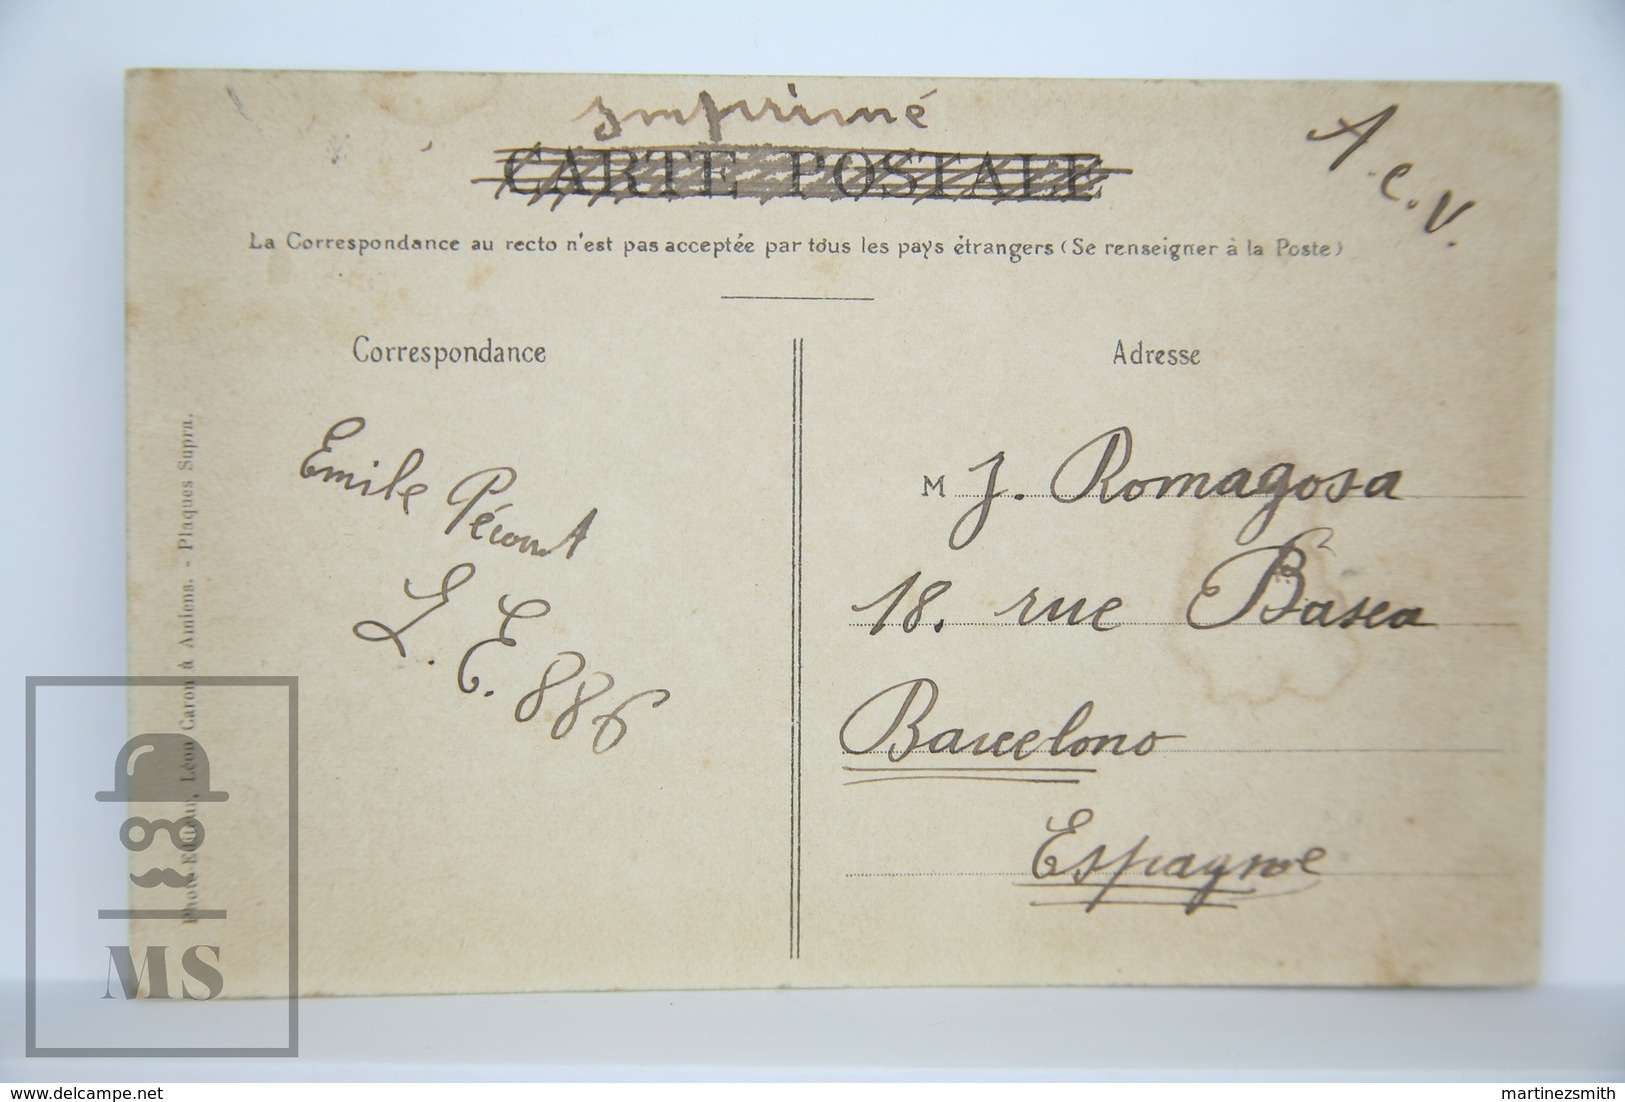 Imprimé
CARTE POSTALE
T.C.V.
La Correspondance au recto n'est pas acceptée par tous les pays étrangers (Se renseigner à la Poste)
Correspondance
Emile Pécourt
L. E. 886
Adresse
M J. Romagosa
18. rue Basea
Barcelono
Espagne
Photo-Editeur, Léon Caron à Amiens. - Plaques Supra.
MS
delcampe.net
martinezsmith